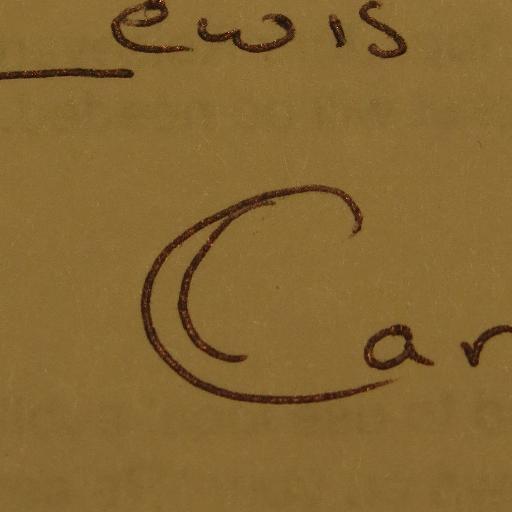 ewis
Car